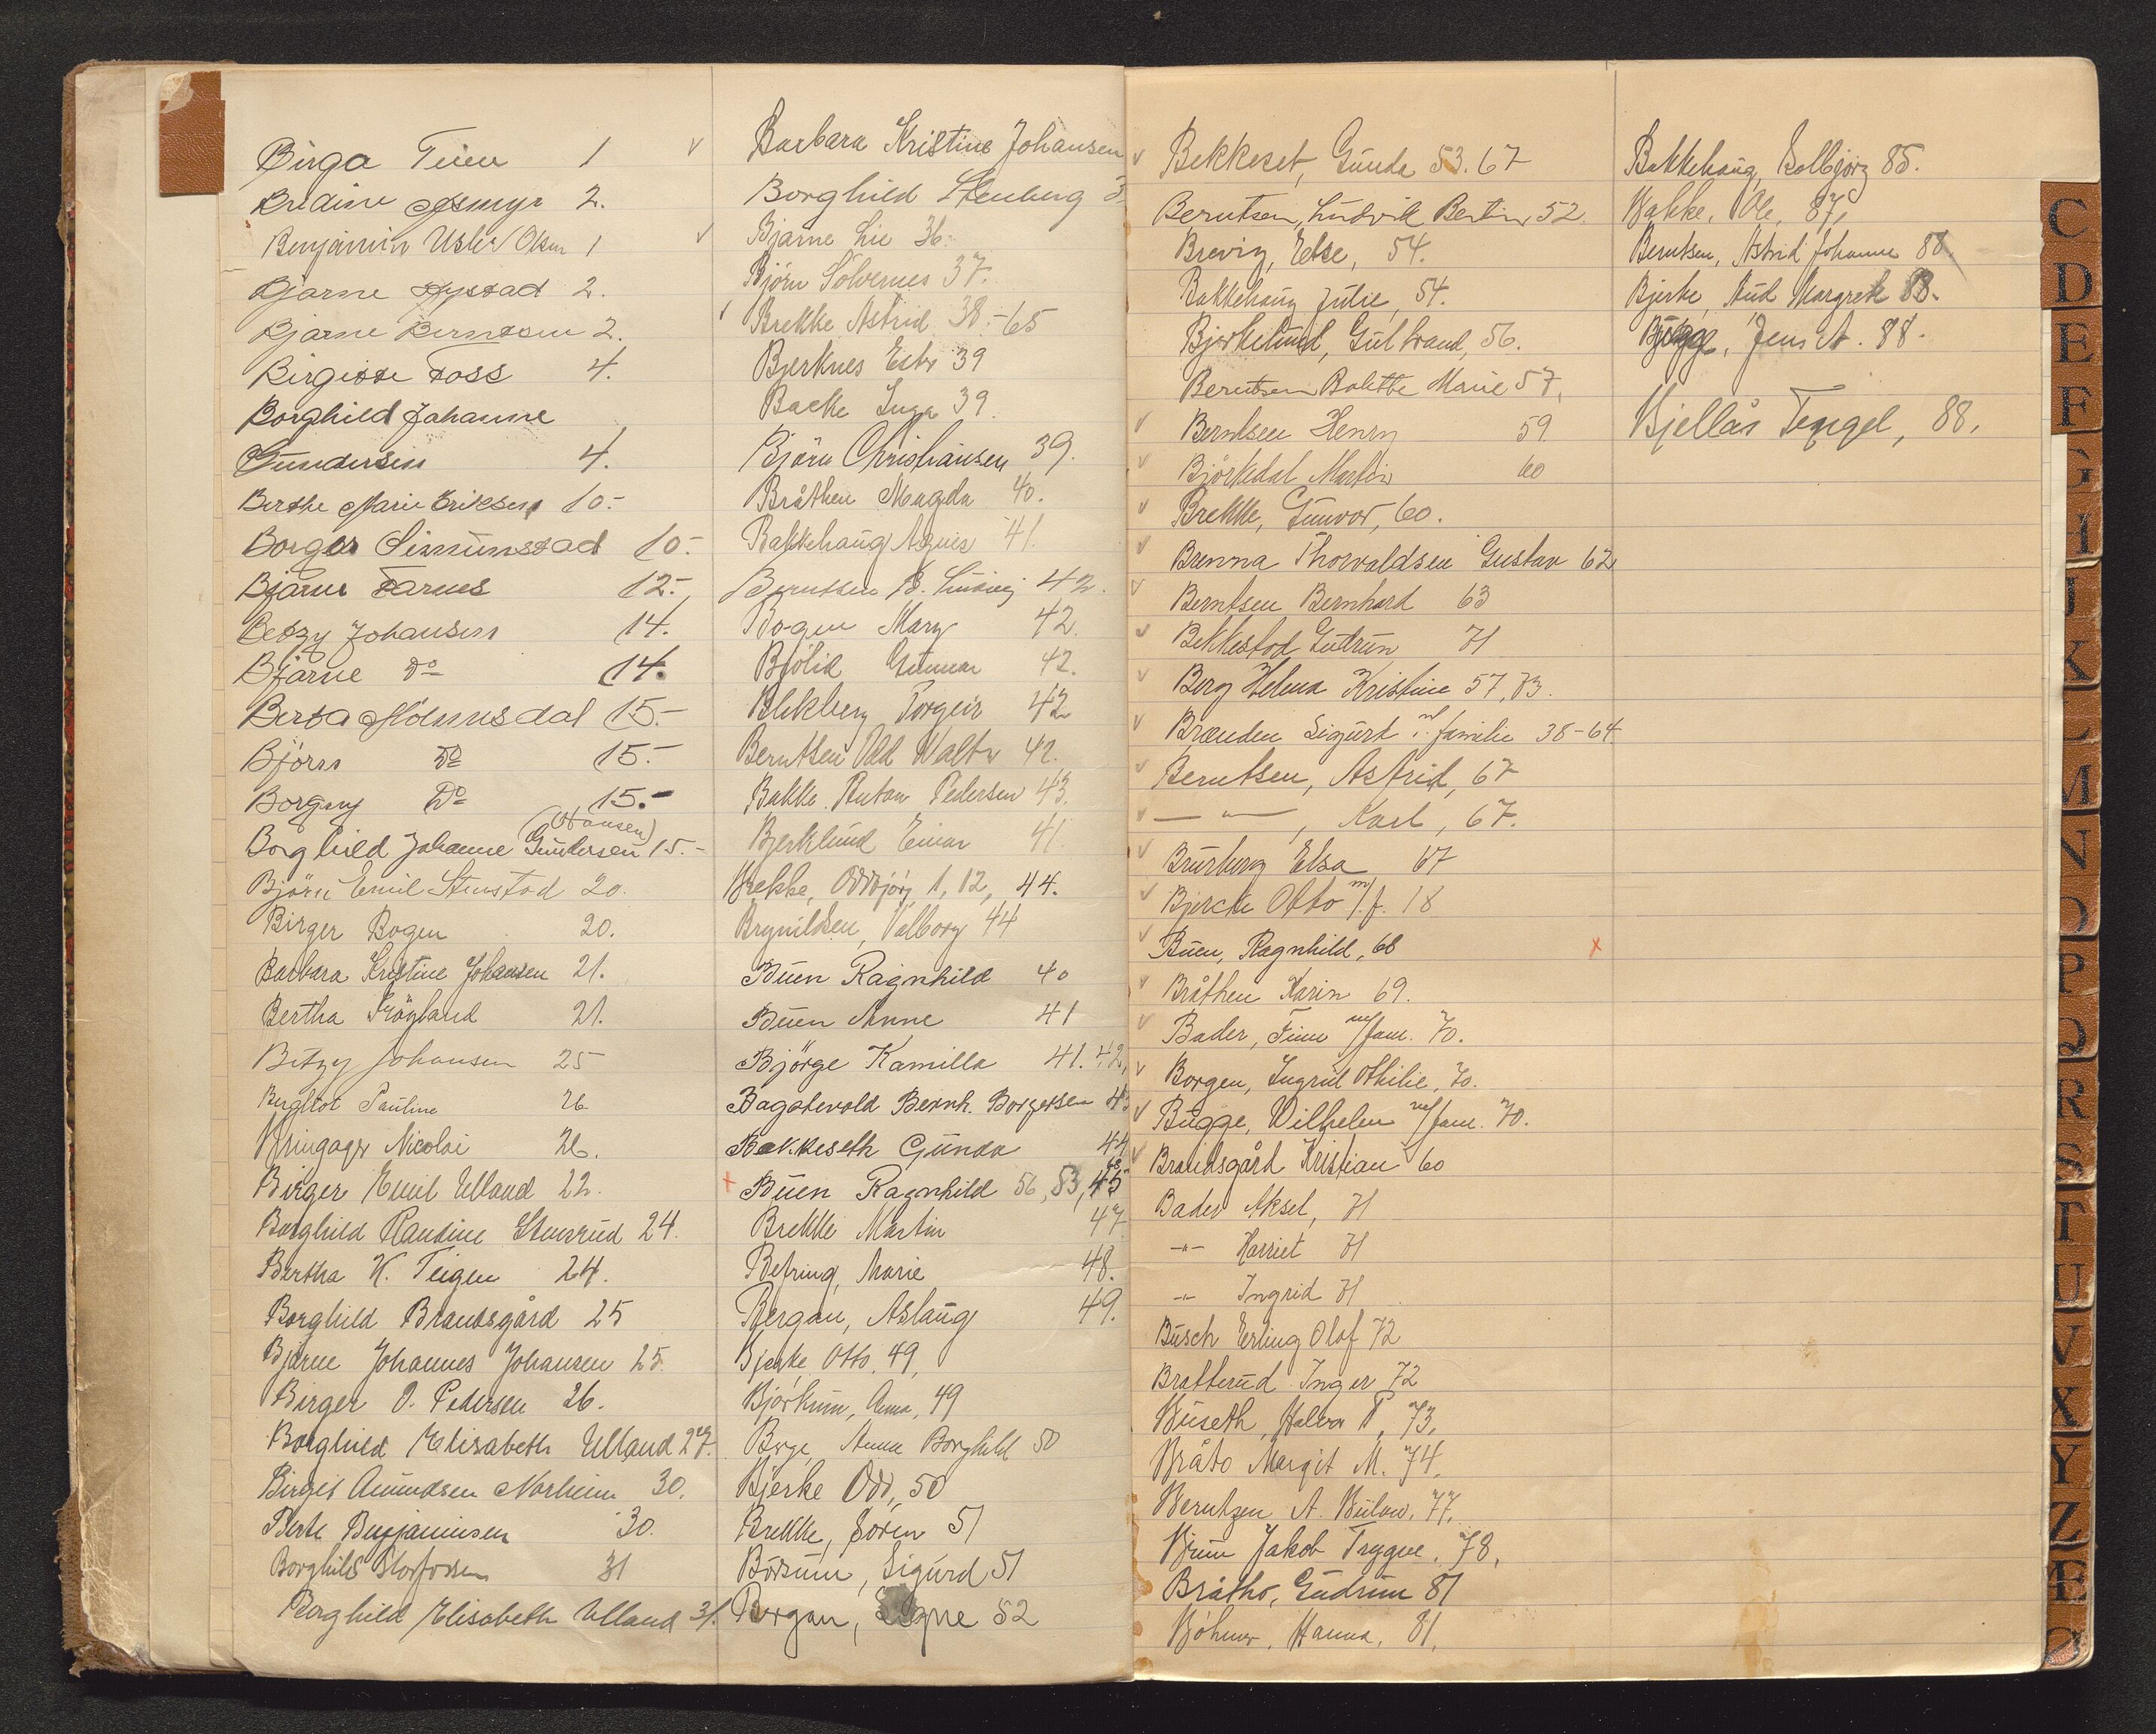 Birga Teien 1
Bredine Aasmyr 2.
Benjamin Usler Olsen 1
Bjarne Nystad 2.
Bjarne Berntsen 2.
Birgitte Foss 4.
Borghild Johanne
Gundersen 4.
Berthe Marie Eriksen 10.-
Borger Simunstad 10.-
Bjarne Farnes 12.-
Betzy Johansen 14.
Bjarne Do 14.
Berta Holmsdal 15.-
Björn Do 15.-
Borgny Do 15.-
(Hansen)
Borghild Johanne Gundersen 15.-
Björn Emil Stenstad 20.
Birger Bogen 20.
Barbara Kristine Johansen 21.
Bertha Frögland 21.
Betzy Johansen 25
Bergliot Pauline 26
Bringager Nicolai 26.
Birger Emil Ulland 22.
Borghild Randine Stensrud 24.
Bertha K. Teigen 24.
Borghild Brandsgård 25
Bjarne Johannes Johansen 25.
Birger O. Pedersen 26.
Borghild Elisabeth Ulland 27.
Birgit Amundsen Norheim 30.
Berte Benjaminsen 30.
Borghild Storfossen 31
Borghild Elisabeth Ulland 31.
Barbara Kristine Johansen
Borghild Stenberg 3
Bjarne Lie 36.
Björn Sölvernes 37.
Brekke Astrid 38.-65
Bjerknes Ester 39
Backe Inga 39.
Björn Christiansen 39.
Bråthen Magda 40.
Bakkehaug Agnes 41.
Berntsen B. Ludvig 42.
Bogen Mary 42.
Bjölid Gunnar 42.
Blekberg Torgeir 42
Berntsen Odd Walter 42.
Bakke Anton Pedersen 43.
Bjerklund Einar 41.
Brekke, Oddbjörg 1, 12, 44.
Brynildsen, Valborg 44
Buen Ragnhild 40
Buen Anne 41
Björge Kamilla 41. 42,
Bagstevold Bernh. Borgersen 43
Bekkeseth Gunda 44
68
Buen Ragnhild 56, 83, 45
Brekke Martin 47.
Befring, Marie 48.
Bergan, Aslaug 49.
Bjerke, Otto, 49,
Björkum, Anna, 49
Berge, Anna Borghild 50
Bjerke Odd, 50
Brekke, Sören 51
Börsum, Sigurd 51
Bergan, Signe 52
Bekkeset, Gunda 53. 67
Berntsen, Ludvik Bertin, 52.
Brevig, Else, 54.
Bakkehaug Julie, 54.
Bjørkelund, Gulbrand, 56.
Berntsen Bolette Marie 57,
Berntsen Henry 59.
Björkedal Martin 60
Brekke, Gunvor, 60.
Brenna Thorvaldsen Gustav 62
Berntsen Bernhard 63
Bekkestod Gudrun 71
Berg Helena Kristine 57, 73.
Brænden Sigurd m. familie 38-64.
Berntsen, Astrid, 67
— " —, Karl, 67.
Brurberg Elsa 67
Bjercke Otto m/f. 18
Buen, Ragnhild, 68
Bråthen Karin 69.
Bader, Finn m/fam. 70.
Borgen, Ingrid Othilie, 70.
Bugge, Vilhelm m/fam. 70.
Brandsgård Kristian 60
Bader Aksel, 71
-"- Harriet 71
-"- Ingrid 71
Busch Erling Olaf 72
Bratterud Inger 72
Buseth, Halvor T, 73,
Bråto Margit M. 74.
Berntzen A. Bülow, 77.
Bruu Jakob Trygve. 78,
Bråtho, Gudrun 81
Böhmer, Hanna, 81,
Bakkehaug, Kolbjørg 85.
Bakke, Ole, 87,
Berntsen, Astrid Johanne 88.
Bjerke, Aud Margrete 88.
Bugge, Jens A. 88.
Bjellås Tengel, 88.
C
D
E
F
G
I
J
K
L
M
N
O
P
Q
R
S
T
U
V
X
Y
Z
Æ
Ø